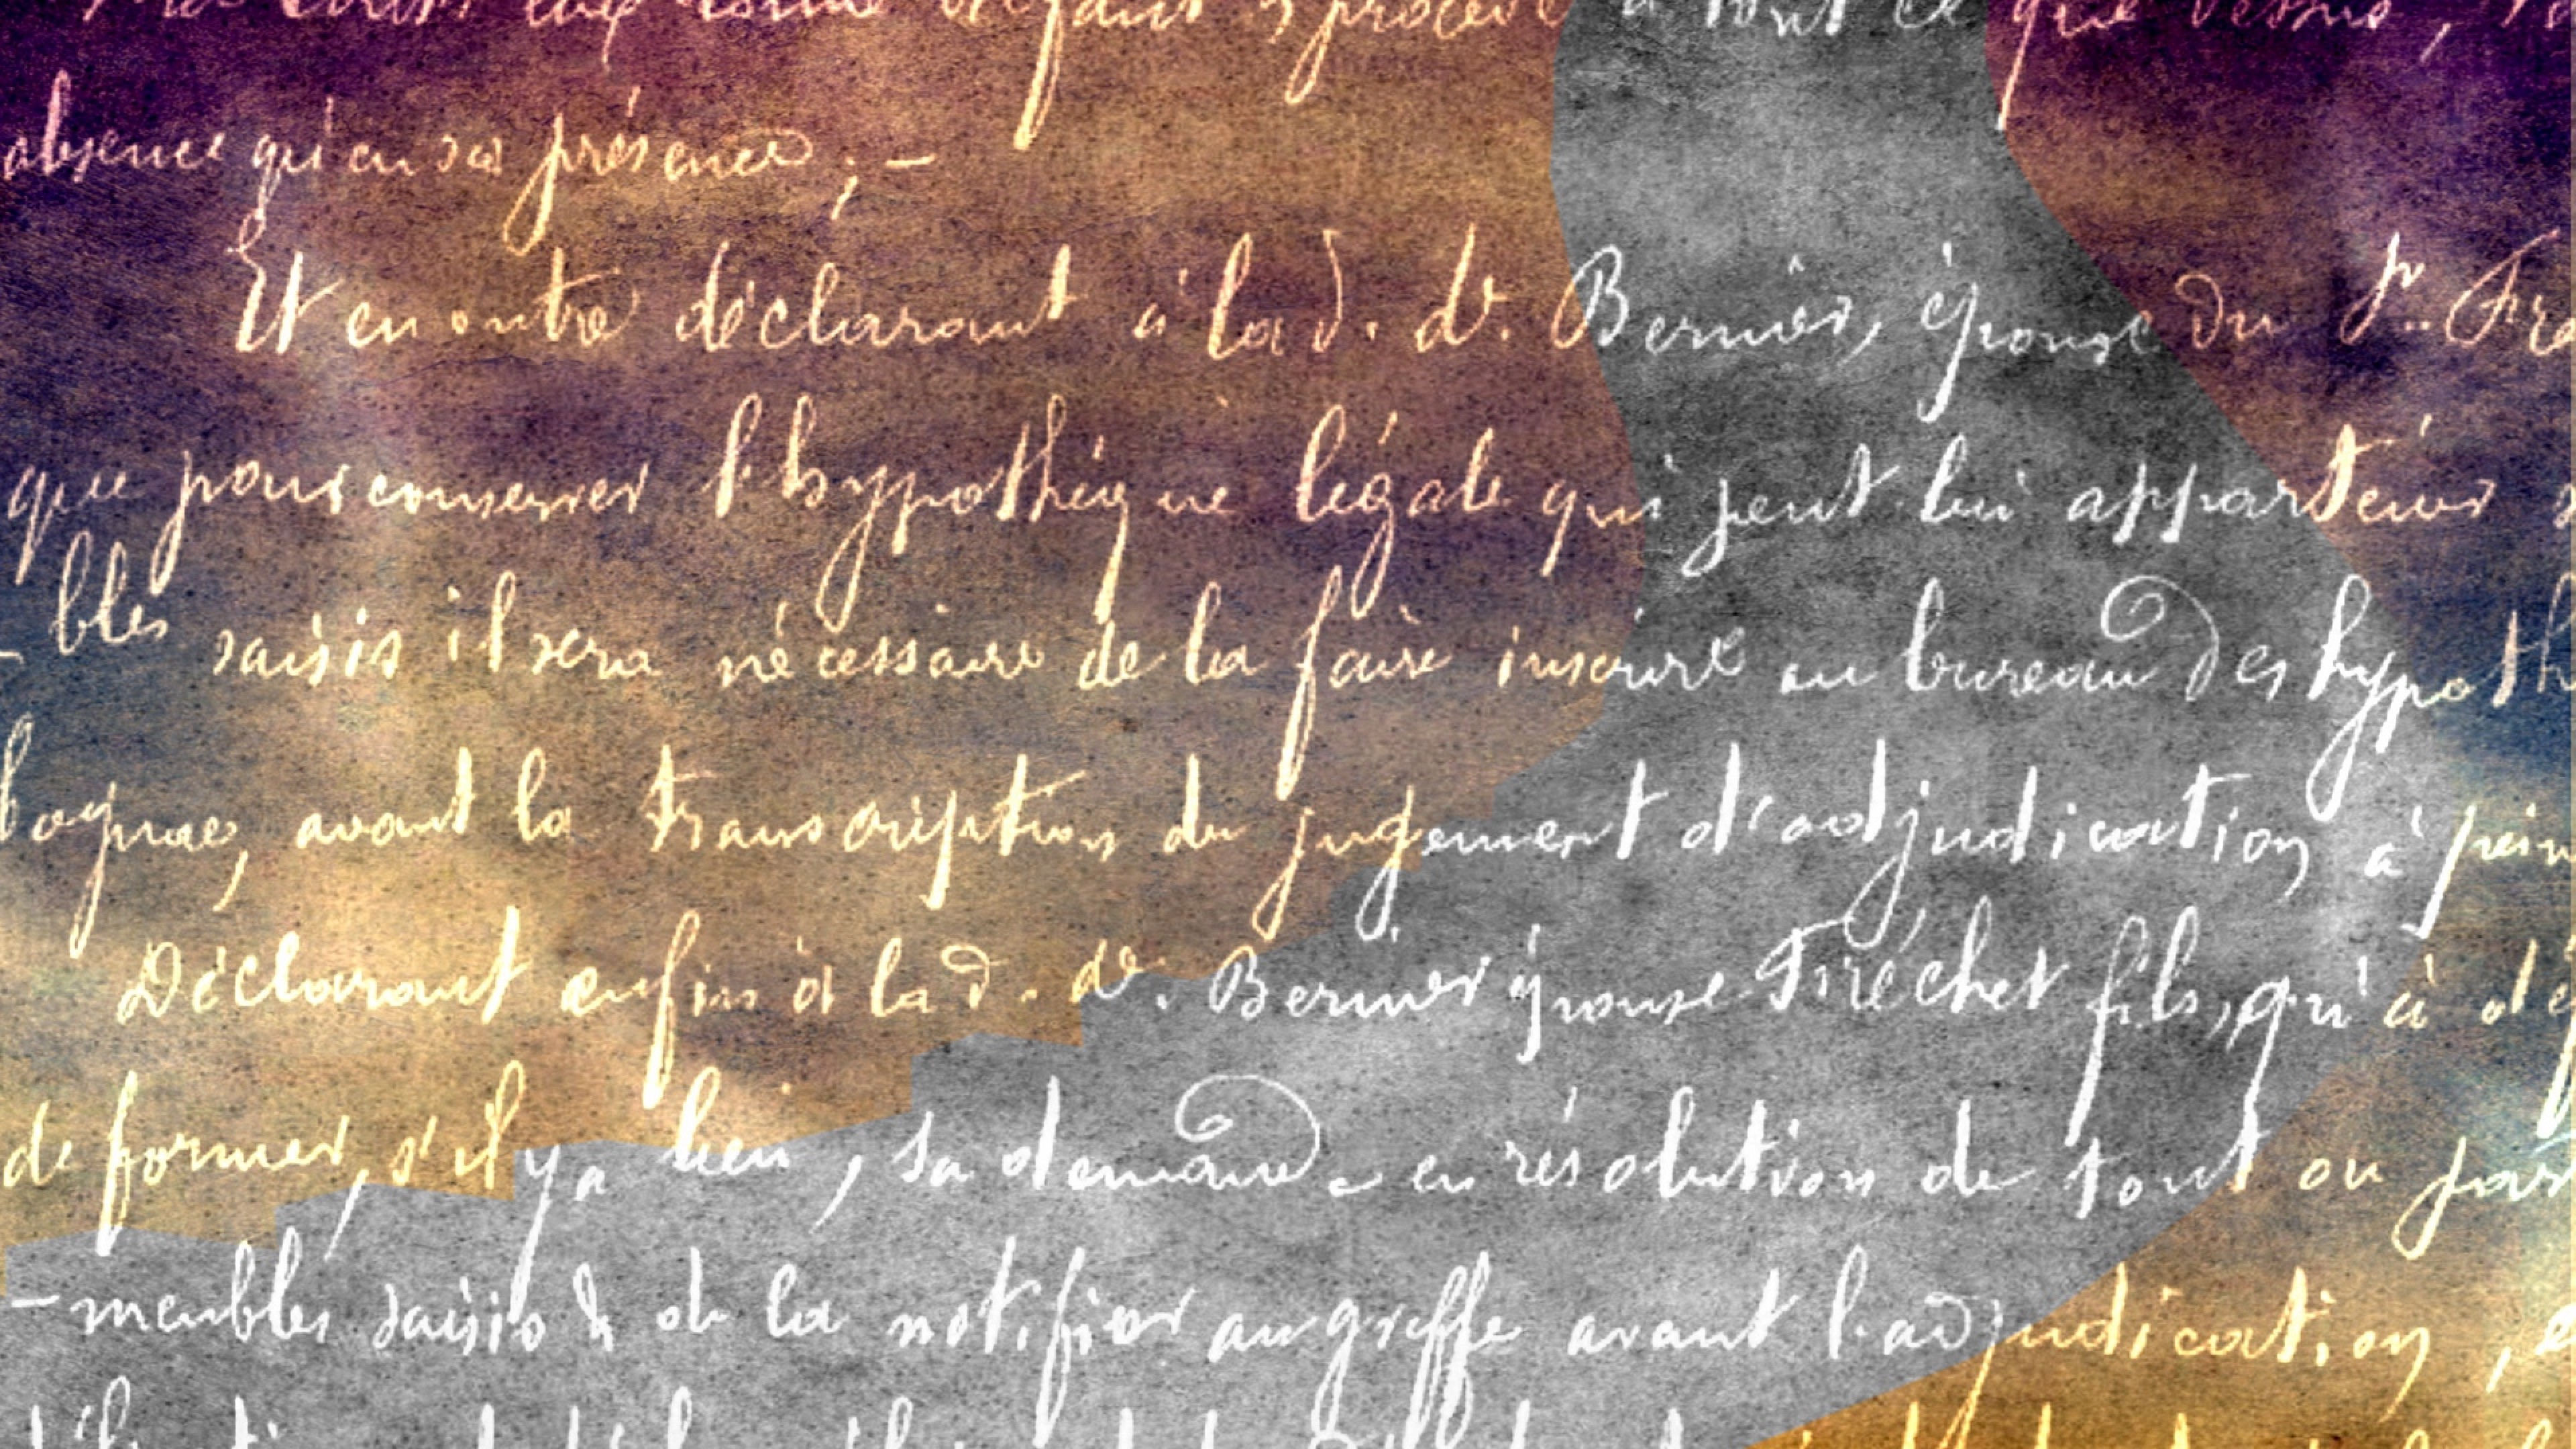 à tout ce que dessus,
absence qu'en sa présence; —
Et en outre déclarant à la d. de. Bernier, épouse du Sr. Fré
que pour conserver l'hypothèque légale qui peut lui appartenir
- bles saisis il sera nécessaire de la faire inscrire au bureau des hypoth
avant la transcription du jugement d'adjudication à pein
Déclarant enfin à la d. de. Bernier épouse Fréchet fils, qu'à dé
de former, s'il y a lieu, sa demande en résolution de tout ou par
- meubles saisis & de la notifier au greffe avant l'adjudication,